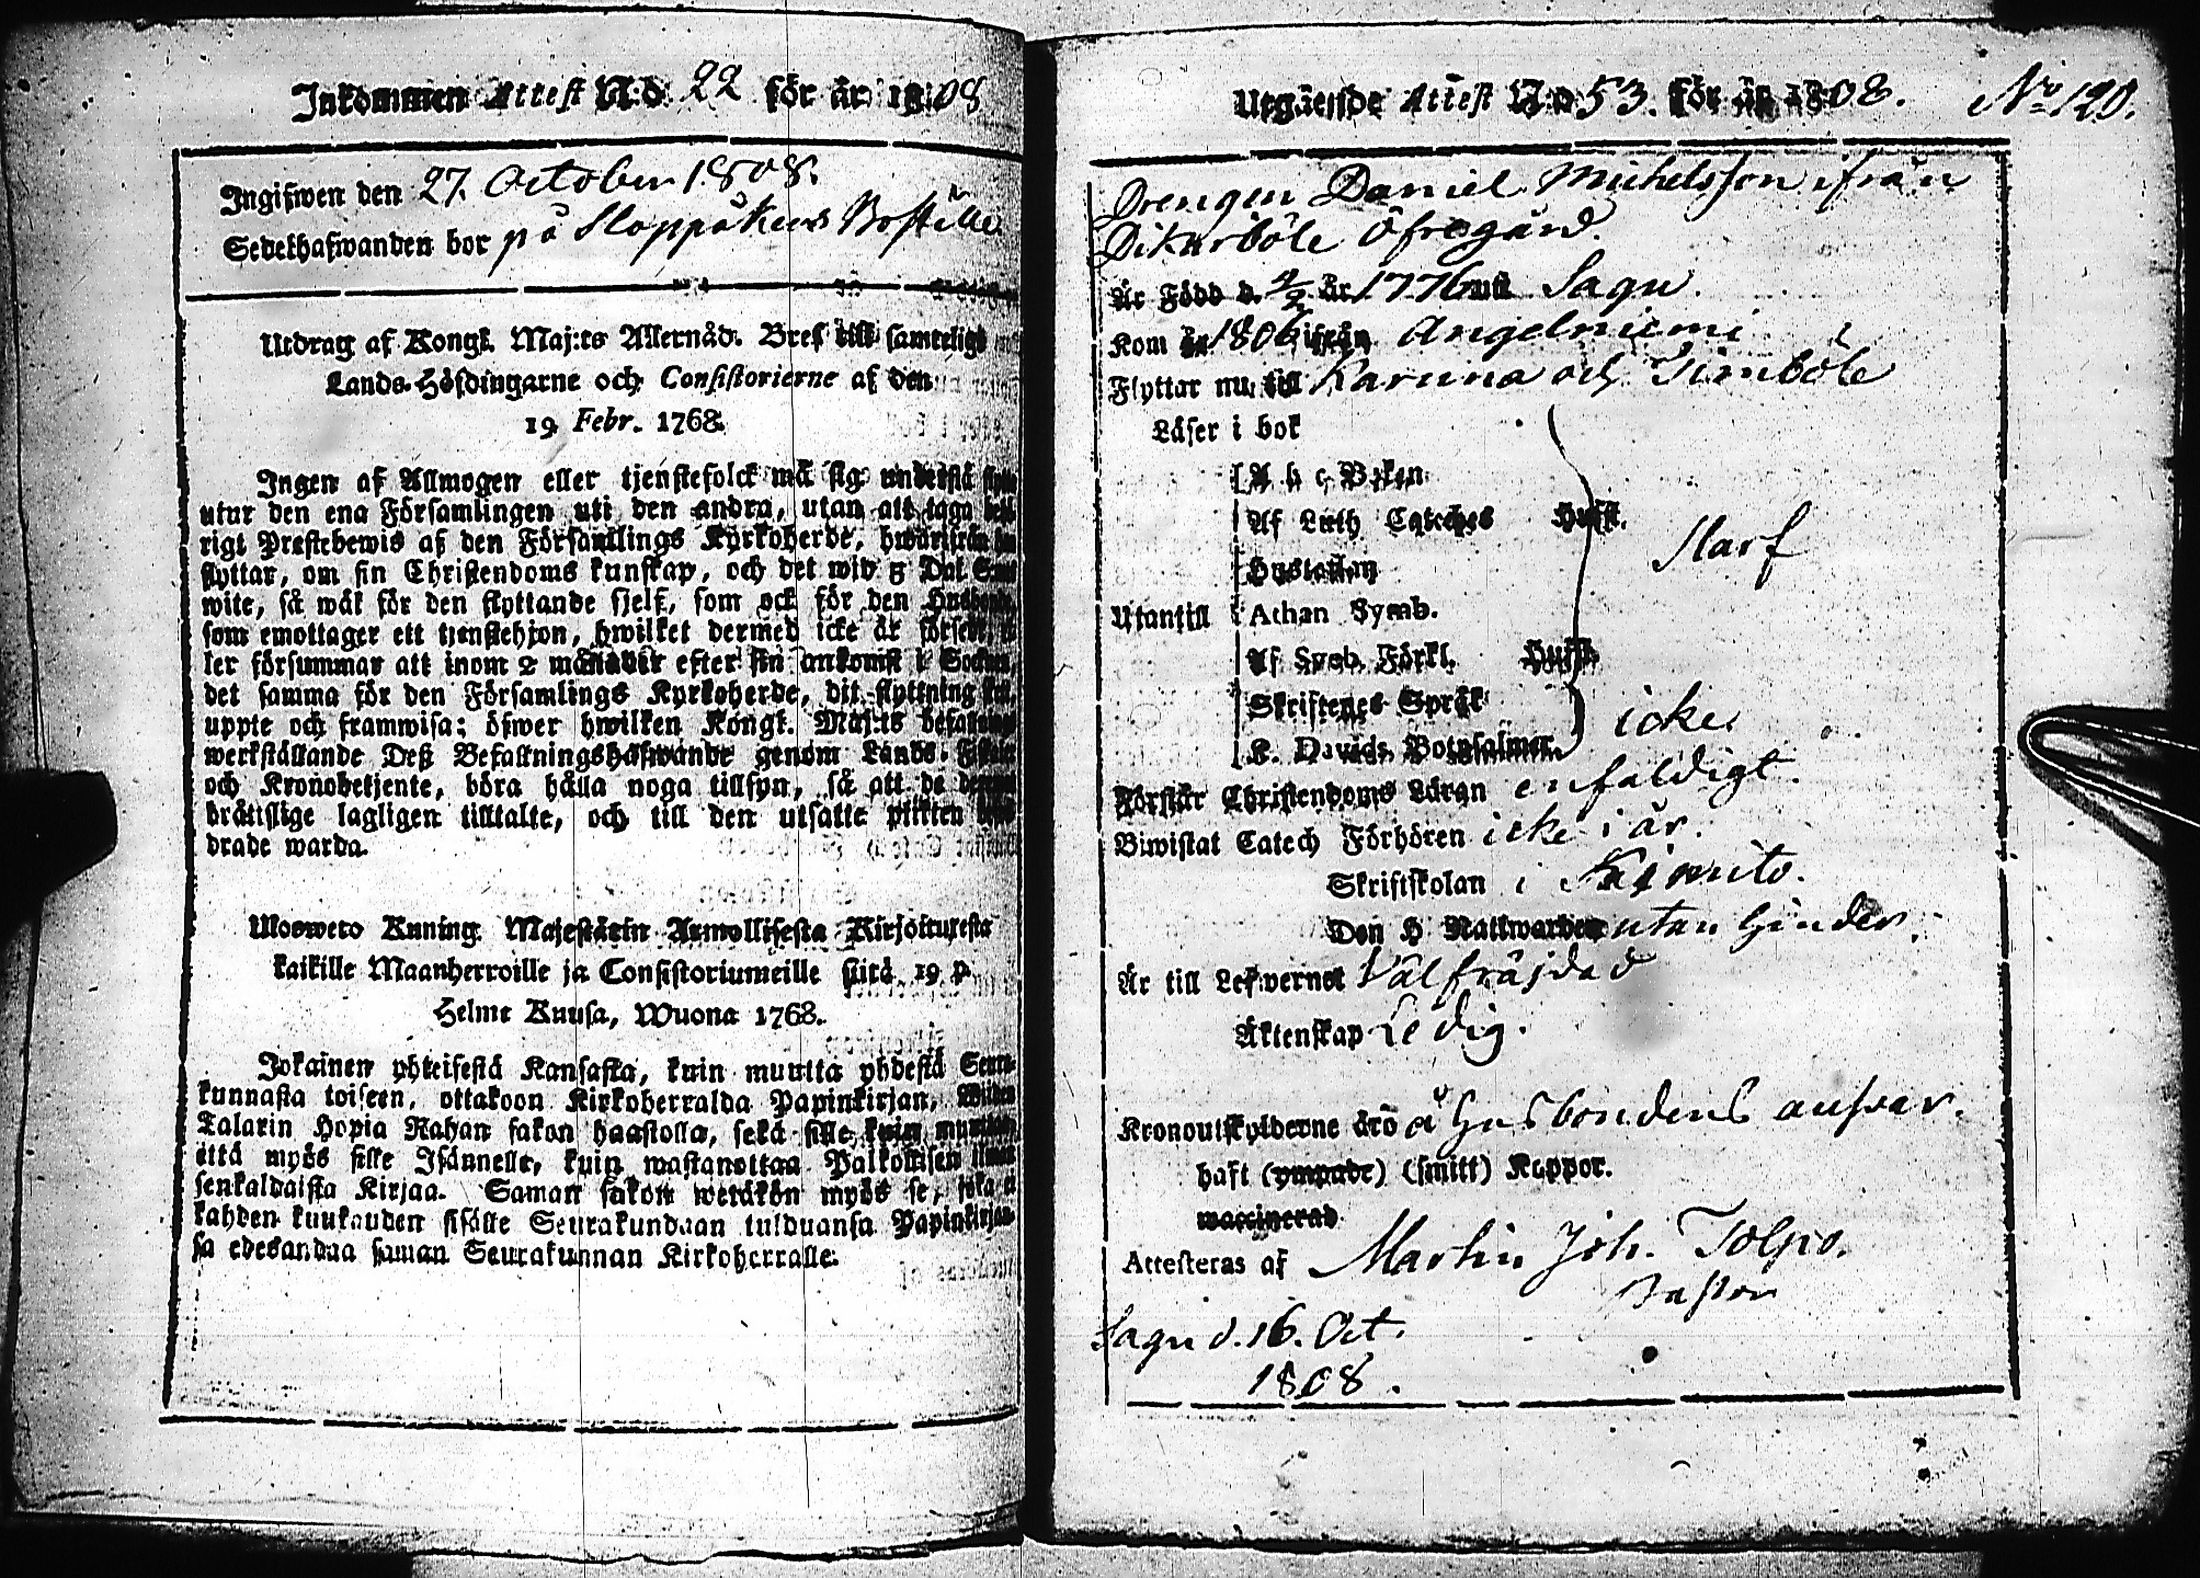 Inkommen Attest N:o 22 för år 1808
Ingifwen den 27. October 1808.
Sedelhafwanden bor på Sloppåkers Boställe
Utdrag af Kongl. Maj:ts Allernåd. Bref till samtelige
Lands-Höfdingarne och Consistorierne af den
19 Febr. 1768.
Ingen af Allmogen eller tjenstefolck må sig understå
utur den ena Församlingen uti den andra, utan att taga
rigt Prestebewis af den Församlings Kyrkoherde, hwarifrån
flyttar, om sin Christendoms kunskap, och det wid 5 Dal.
wite, så wäl för den flyttande sjelf, som ock för den
som emottager ett tjenstehjon, hwilket dermed icke är försedt,
ler försummar att inom 2 månader efter sin ankomst i Socknen,
det samma för den Församlings Kyrkoherde, dit flyttning
uppte och framwisa; öfwer hwilken Kongl. Maj:ts befallning
werkställande Deß Befallningshafwande genom Lands-
och Kronobetjente, böra hålla noga tillsyn, så att de
brätslige lagligen tilltalte, och till den utsatte plikten
drade warda.
Uloswero Kuning. Majestätin Armollisesta Kirjoituxesta
kaikille Maanherroille ja Consistoriumeille siitä 19 p.
Helme Kuusa, Wuona 1768.
Jokainen yhteisestä Kansasta, kuin muutta yhdestä Seura-
kunnasta toiseen, ottakoon Kirkoherralda Papinkirjan, Wiiden
Talarin Hopia Rahan sakon haastolla, sekä sille kuin
että myös sille Isännelle, kuin wastanottaa Palkollisen ilman
senkaldaista Kirjaa. Saman sakon wetäkön myös se, joka ei
kahden kuukauden sisälle Seurakundaan tulduansa Papinkirjaa-
sa edesandaa saman Seurakunnan Kirkoherralle.
Utgående Attest N:o 53. för år 1808. No 120.
Drengen Daniel Michelsson ifrån
Dikarböle Öfregård.
Är Född d. 4/2 år 1776 uti Sagu.
Kom år 1806 ifrån Angelniemi
Flyttar nu till Karuna och Timböle
Läser i bok
A b c Boken
Af Luth Cateches Hufst.
Hustaflan
Utantill Athan Symb.
Af Sveb. Förkl. Hufst.
Skriftenes Språk
K. Davids Botpsalmer. icke
Slarf
Förstår Christendoms Läran enfaldigt.
Biwistat Catech Förhören icke i år.
Skriftskolan i Kimito.
Den H Nattwarden utan hinder.
Är till Lefvernet Välfräjdad
Äktenskap Ledig.
Kronoutskylderne äro å Husbondens answar.
haft (ympade) (smitt) Koppor.
waccinerad
Attesteras af Martin Joh. Tolpo.
Pastor
Sagu d. 16. Oct.
1808.